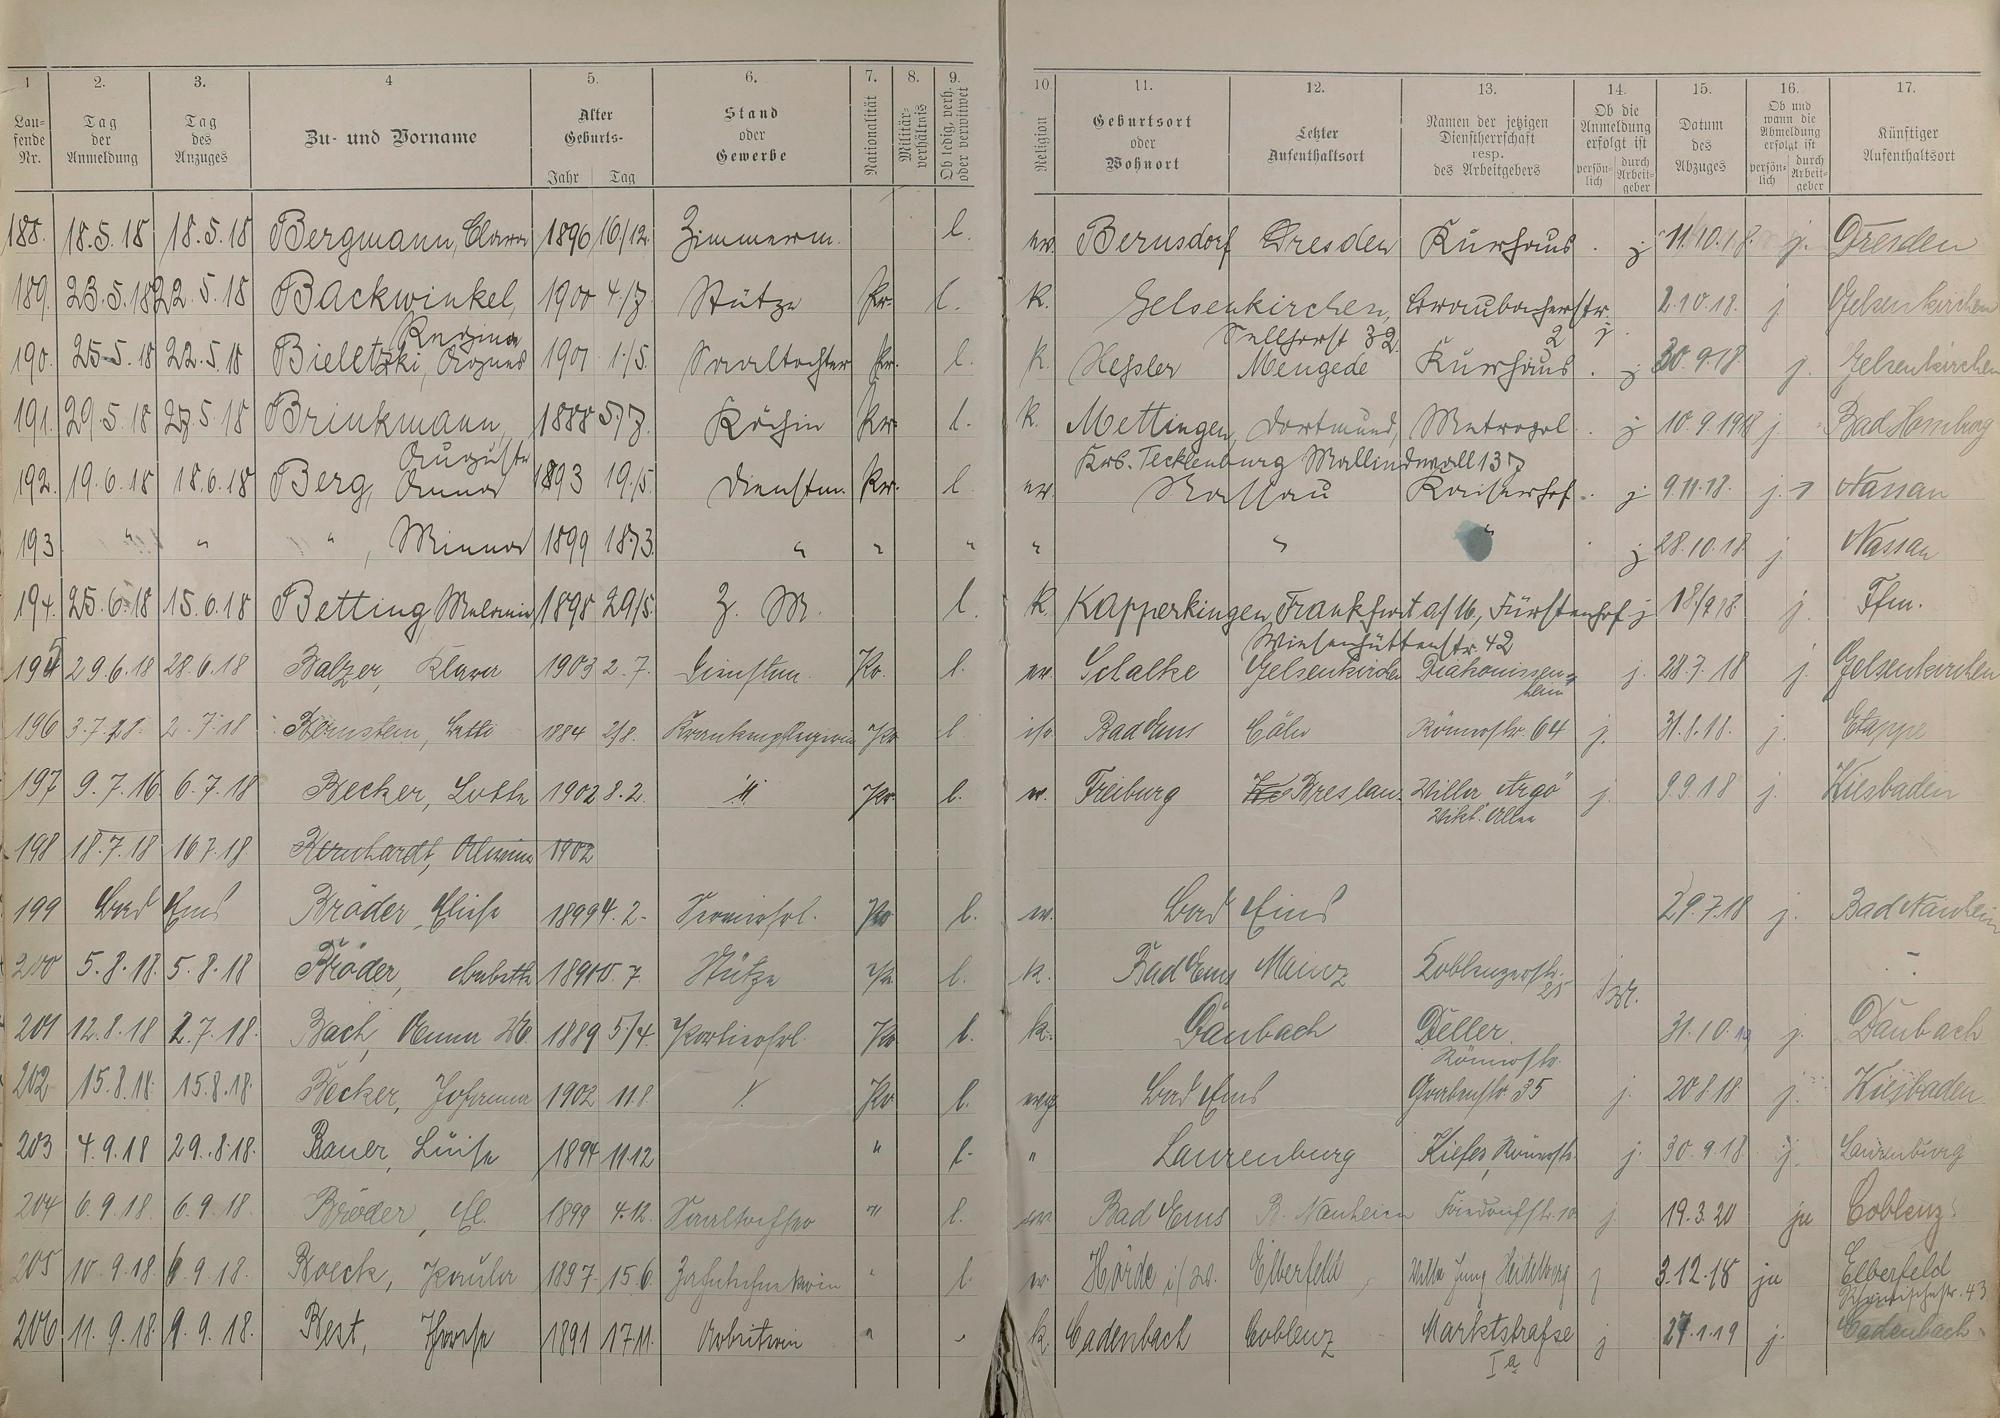 1 2. 3. 4 5. 6. 7. 8. 9. 10 11. 12. 13. 14. 15. 16. 17.
Lau- fende Nr. Tag der Anmeldung Tag des Anzuges Zu- und Vorname Alter Geburts- Jahr Tag Stand oder Gewerbe Nationalität Militär- verhältnis Ob ledig, verh. oder verwitwet Religion Geburtsort oder Wohnort Letzter Aufenthaltsort Namen der jetzigen Dienstherrschaft resp. des Arbeitgebers Ob die Anmeldung erfolgt ist persön- lich durch Arbeit- geber Datum des Abzuges Ob und wann die Abmeldung erfolgt ist persön- lich durch Arbeit- geber Künftiger Aufenthaltsort
188. 18.5.18 18.5.18 Bergmann, Clara 1896 16/12. Zimmerm. l. ev. Bernsdorf Dresden Kurhaus. j 11/10.18. j. Dresden
189. 23.5.18 22.5.18 Backwinkel, 1900 4./7. Stütze Pr. l. K. Gelsenkirchen, Braubacherstr. 2.10.18. j Gelsenkirchen
Regina Sellhorst 32. 2 j
190. 25.5.18 22.5.18 Bieletzki, Agnes 1901 1./5. Saaltochter Pr. l. K. Hessler Mengede Kurhaus. j 30.9.18 j. Gelsenkirchen
191. 29.5.18 27.5.18 Brinkmann, 1888 5./7. Köchin Pr. l. K. Mettingen, Dortmund, Metropol. j 10.9.1918 j Bad Homburg
Auguste Krs. Tecklenburg Wallindwall 137
192. 19.6.18 18.6.18 Berg, Anna 1893 19./5. Dienstm. Pr. l. ev. Nassau Kaiserhof. j 9.11.18. j. Nassau
193 " " ", Minna 1899 18./3. " " " " " " j 28.10.18 j Nassau
194. 25.6.18 15.6.18 Betting, Melanie 1898 29/5. Z. M. l. K. Kapperkingen, Frankfurt a/M., Fürstenhof j 18/9 18. j. Ffm.
Wiesenhüttenstr. 42
195 29.6.18 28.6.18 Balzer, Klara 1903 2.7. Dienstm. Pr. l. ev. Schalke Gelsenkirchen Diakonissen- j. 28.7.18 j. Gelsenkirchen
heim
196 3.7.18. 2.7.18 Bernstein, Betti 1884 2/8. Krankenpflegerin Pr. l. isr. Bad Ems Cöln Römerstr. 64 j. 31.8.18. j. Etappe
197 9.7.16 6.7.18 Becker, Lotte 1902 8.2. " Pr. l. ev. Freiburg Breslau. Villa Argo j. 9.9.18 j. Wiesbaden
Vikt. Allee
198 18.7.18 16.7.18. Bernhardt, 1902
199 Bad Ems Bröder, Elise 1899 4.2. Servierfrl. Pr. l. ev. Bad Ems 29.7.18 j. Bad Nauheim
200 5.8.18. 5.8.18 Bröder, Babette Stütze Pr. l. k. Bad Ems Mainz Koblenzerstr. -
25
201 12.8.18 2.7.18. Bach, Anna M. 1889 5./4. Portierfrl. Pr. l. k. Däubach Deller 31.10. j. Däubach
Römerstr.
202 15.8.18. 15.8.18. Becker, Johanna 1902 11.8. Pr. l. evg Bad Ems Grabenstr 35 j. 20.8.18 j. Wiesbaden
203 4.9.18 29.8.18. Bauer, Luise 1894 11.12 " l. " Laurenburg Kiefer, Römerstr. j. 30.9.18 j. Laurenburg
204 6.9.18. 6.9.18. Bröder, El. 1899 4.12. Saaltochter " l. ev. Bad Ems B. Nauheim Friedrichstr. 10 j. 19.3.20 ja Coblenz.
205 10.9.18. 6.9.18. Boeck, Paula 1897. 15.6. " l. ev. Hörde i/W. Elberfeld, Villa Jung Heidelberg j 3.12.18 ja Elberfeld
43
206 11.9.18. 9.9.18. Best, Therese 1891 17.11. Arbeiterin " " k Cadenbach Coblenz Marktstraße j 27.1.19 j. Cadenbach.
I a